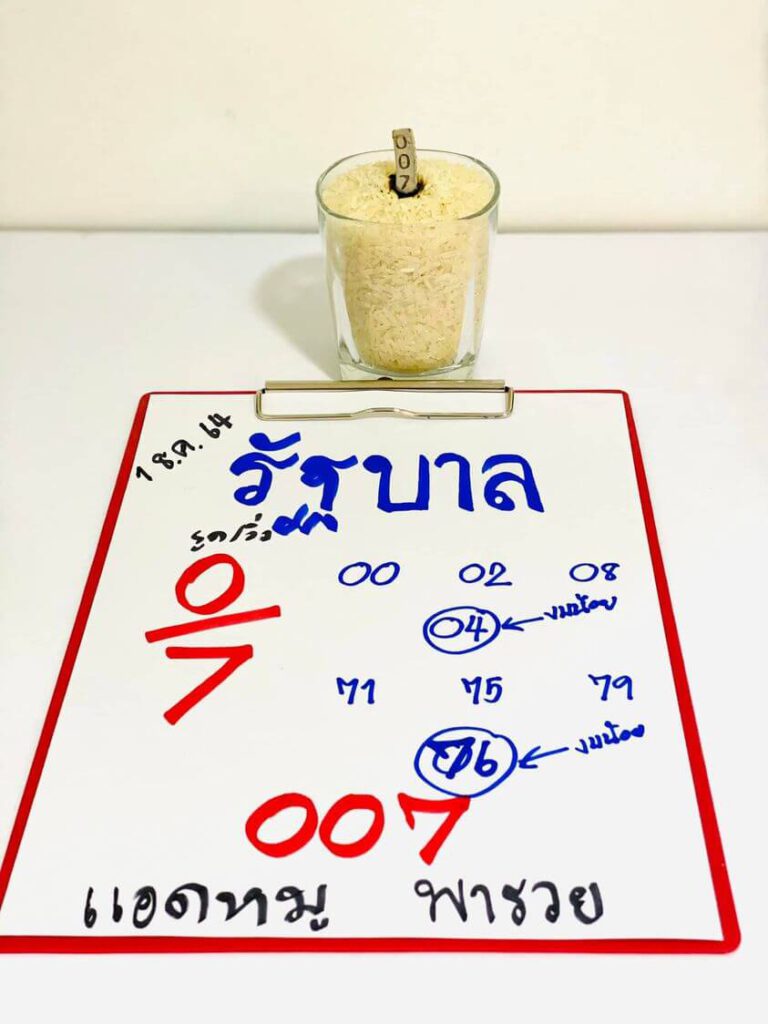 007
1 ธ.ค. 64
รัฐบาล
0
7
00 02 08
04 งบน้อย
71 75 79
76 งบน้อย
007
แอดหมู พารวย